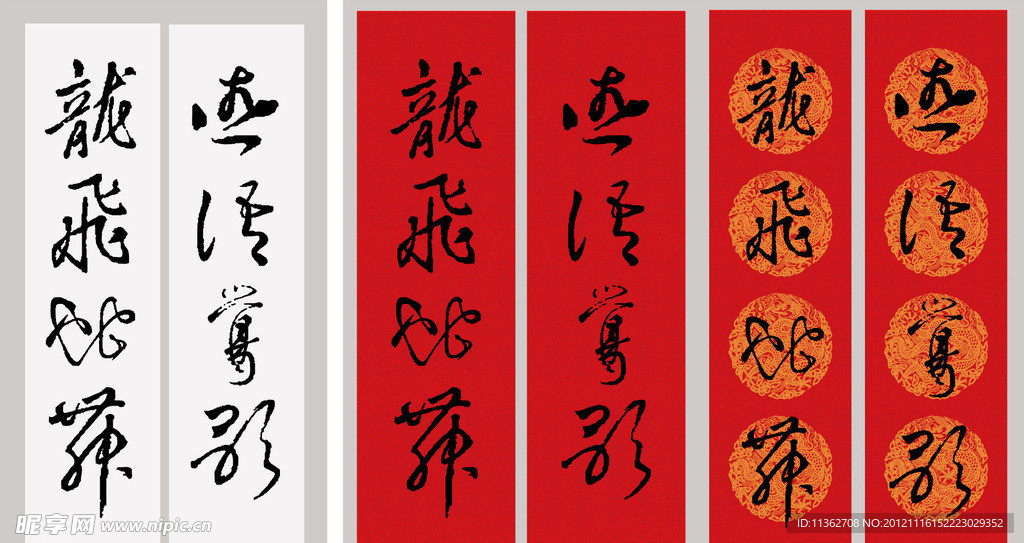 燕語鶯歌
龍飛蛇舞
燕語鶯歌
龍飛蛇舞
燕語鶯歌
龍飛蛇舞
昵享网 www.nipic.cn
ID:11362708 NO:20121116152223029352